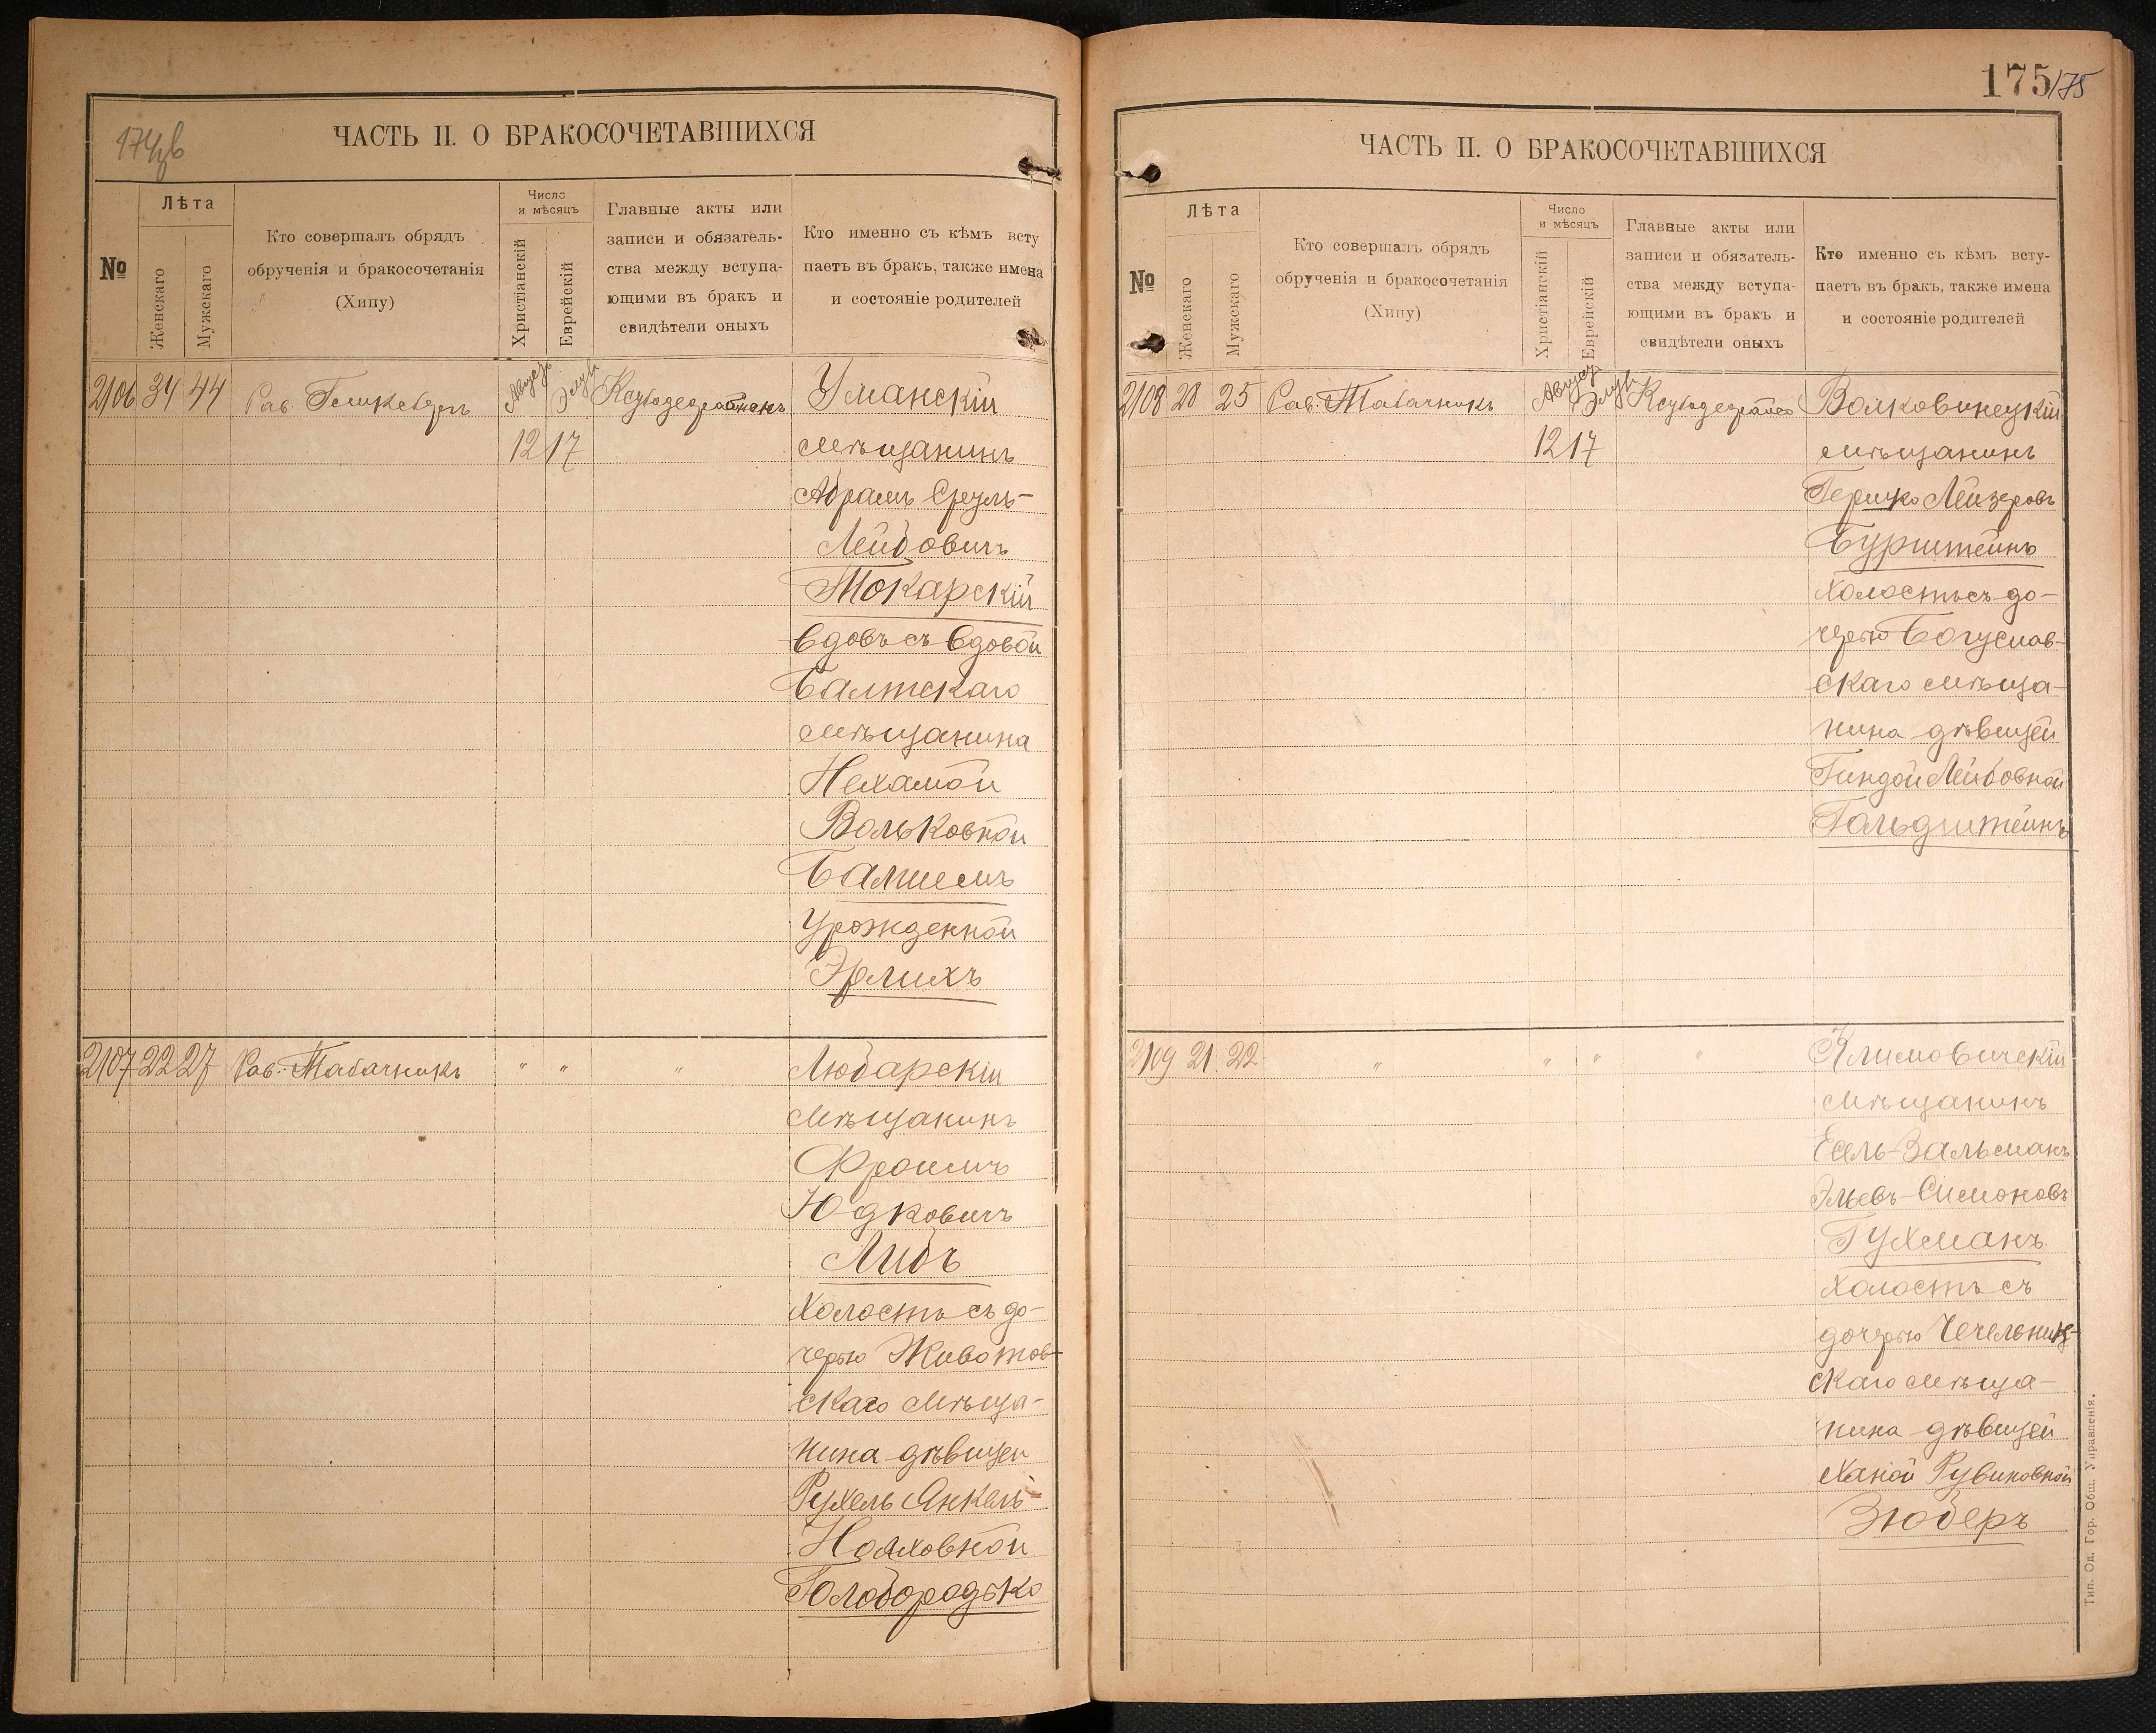 174 об
ЧАСТЬ II. О БРАКОСОЧЕТАВШИХСЯ
№
Лѣта
Женскаго
Мужскаго
Кто совершалъ обрядъ
обрученія и бракосочетанія
(Хипу)
Число
и мѣсяцъ
Христіанскій
Еврейскій
Главные акты или
записи и обязатель-
ства между вступа-
ющими въ бракъ и
свидѣтели оныхъ
Кто именно съ кѣмъ всту
паетъ въ бракъ, также имена
и состояніе родителей
2106 34 44 Рав. Август Элул Уманскій
12 17 мѣщанинъ
Абрамъ Сруль-
Лейбовичъ
Токарскій
вдовъ съ вдовой
Балтскаго
мѣщанина
Нехамой
Вольковной
Балшемъ
урожденной
Эрлихъ
2107 22 27 Рав. Табачникъ " " " Любарскій
мѣщанинъ
Фроимъ
Юдковичъ
Либъ
холостъ съ до-
черью Животов-
скаго мѣща-
нина дѣвицей
Рухель Янкель-
Нояховной
Голобородько
175 175
ЧАСТЬ II. О БРАКОСОЧЕТАВШИХСЯ
№
Лѣта
Женскаго
Мужскаго
Кто совершалъ обрядъ
обрученія и бракосочетанія
(Хипу)
Число
и мѣсяцъ
Христіанскій
Еврейскій
Главные акты или
записи и обязатель-
ства между вступа-
ющими въ бракъ и
свидѣтели оныхъ
Кто именно съ кѣмъ всту-
паетъ въ бракъ, также имена
и состояніе родителей
2108 28 25 Рав. Табачникъ Август Элул Волковинецкій
12 17 мѣщанинъ
Гершко Лейзеровъ
Бурштейнъ
холостъ съ до-
черью Богуслав-
скаго мѣща-
нина дѣвицей
Гиндой Лейбовной
Гольдштейнъ
2109 21 22 " " " " Климовичскій
мѣщанинъ
Есель-Зальманъ
Эльевъ-Симоновъ
Гухманъ
холостъ съ
дочерью Чечельниц-
скаго мѣща-
нина дѣвицей
Ханой Рувиновной
Зюберъ
Тип. Од. Гор. Общ. Управленія.